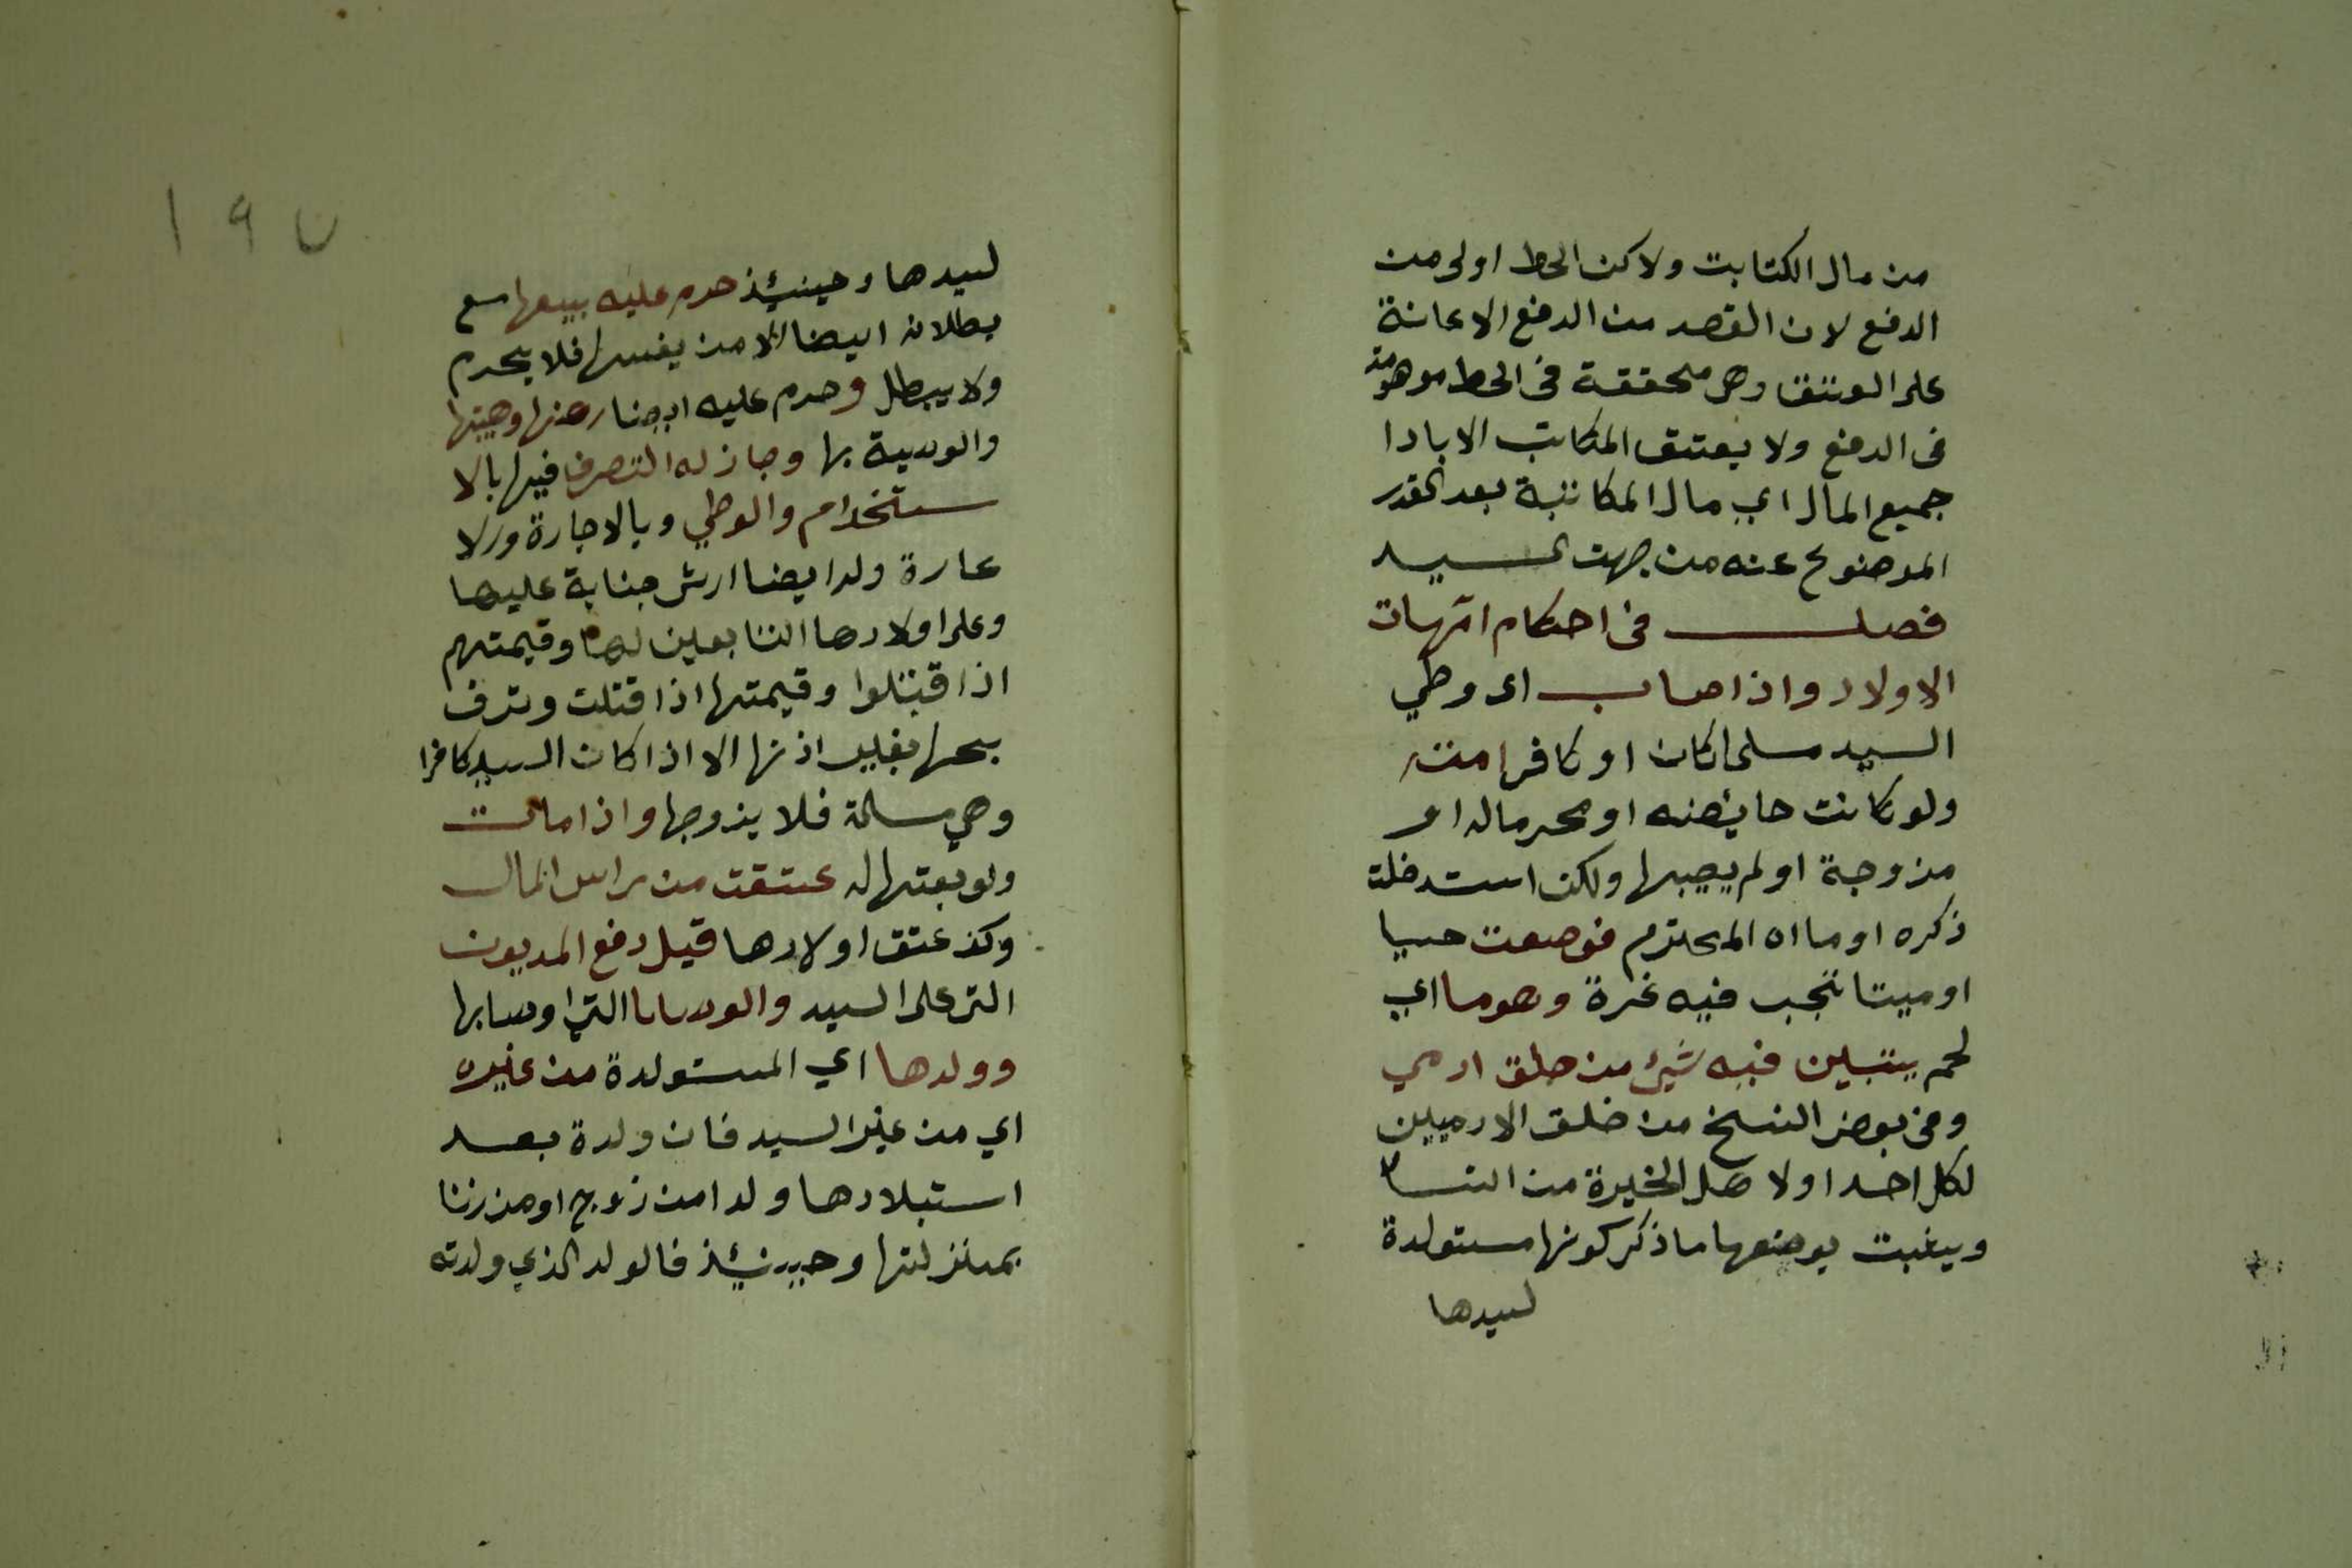 من مال الكتابت ولاكن الحط اولى من
الدفع لان القصد من الدفع الاعانة
على العتق وهى محققة فى الحط موهومة
فى الدفع ولا يعتق المكاتب الا بادا
جميع المال اي مال المكاتبة بعد القدر
الموضوع عنه من جهت السيد
فصل فى احكام امهات
الاولاد واذا اصاب اى وطي
السيد مسلما كان او كافرا امته
ولو كانت حايضنه او محرما له او
مزوجة او لم يصبها ولكن استدخلت
ذكره او ماءه المحترم فوضعت حيا
او ميتا تجب فيه غرة وهو ما اي
لحم يتبين فيه شيئ من خلق ادمي
وفى بعض النسخ من خلق الادميين
لكل احد او لاهل الخبرة من النسا
ويثبت بوضعها ما ذكر كونها مستولدة
لسيدها
١٩٧
لسيدها وحينيئذ حرم عليه بيعها مع
بطلانه ايضا الا من نفسها فلا يحرم
ولا يبطل وحرم عليه ايضا رهنها وهبتها
والوصية بها وجاز له التصرف فيها بالا
ستخدام والوطي وبالاجارة ورلا
عارة وله ايضا ارش جناية عليها
وعلى اولادها التابعين لها وقيمتهم
اذا قتلوا وقيمتها اذا قتلت
بغير اذنها الا اذا كان السيد كافرا
وهي مسلمة فلا يزوجها واذا مات
ولو بعتها له عتقت من راس المال
وكذ عتق اولادها قبل دفع المديون
التى على السيد والوصايا التي اوصا بها
وولدها اي المستولدة من غيره
اي من غير السيد فان ولدة بعد
استيلادها ولدا من زوج او من زنا
بمنزلتها وحينئذ فالولد الذي ولدته